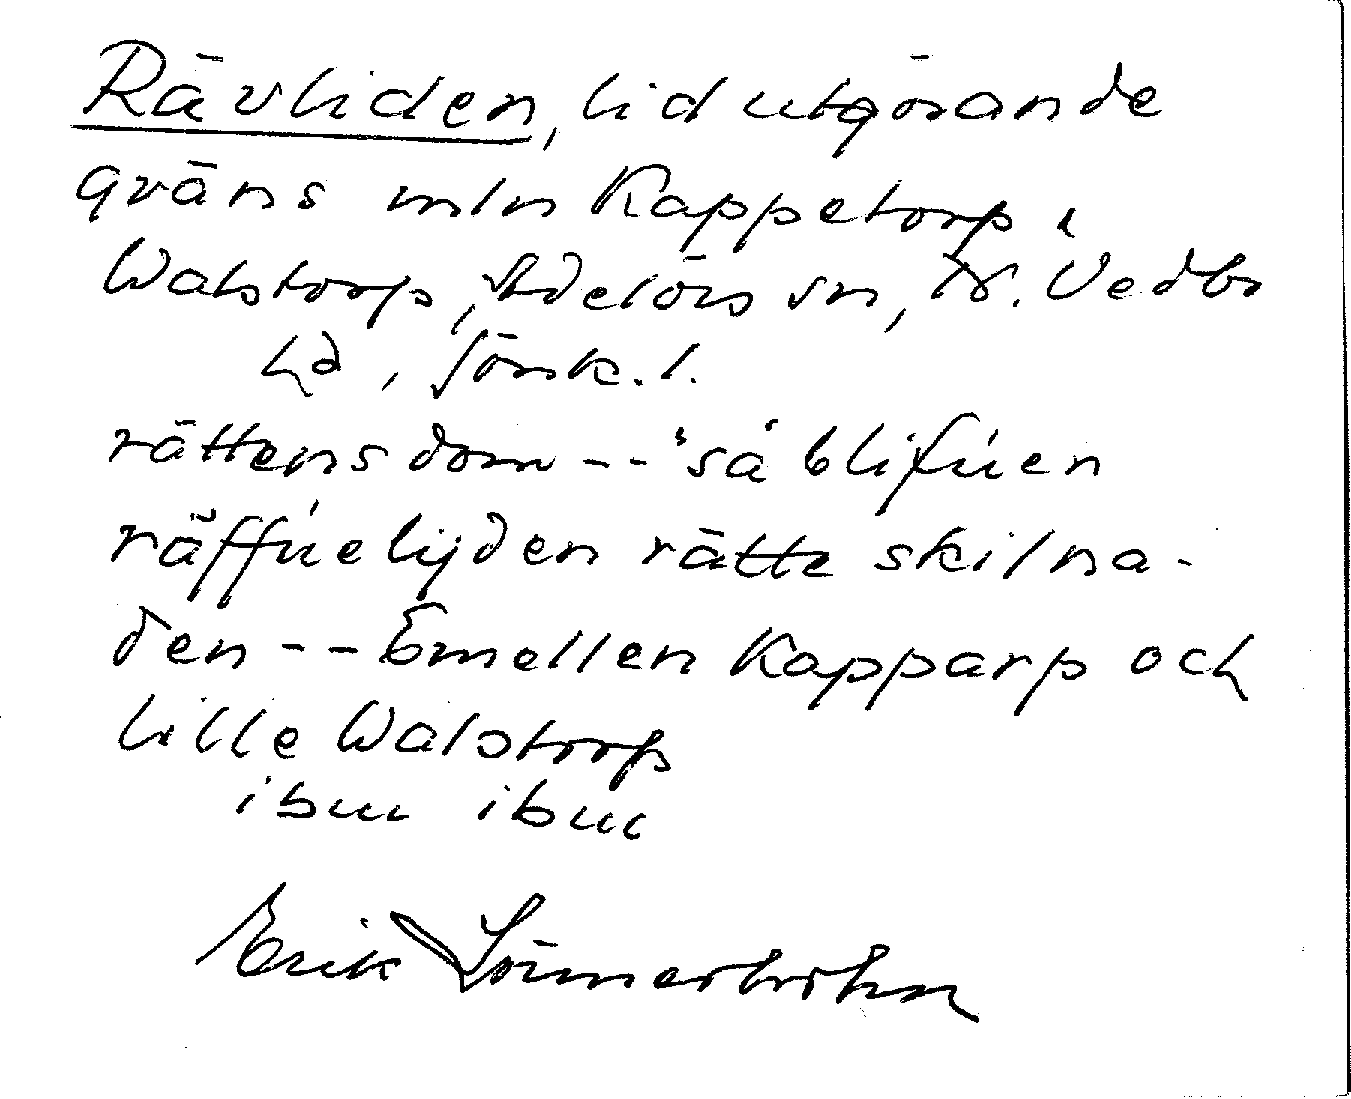 Rävliden, lid utgörande
gräns mln Kappetorp &
Walstorp, Adelövs sn, N. Vedbo
hd, Jönk. l.
rättens dom -- så blifúen
räffúelijden rätte skilna-
den -- Emellen Kapparp och
lille Walstorp
ibm ibm
Erik